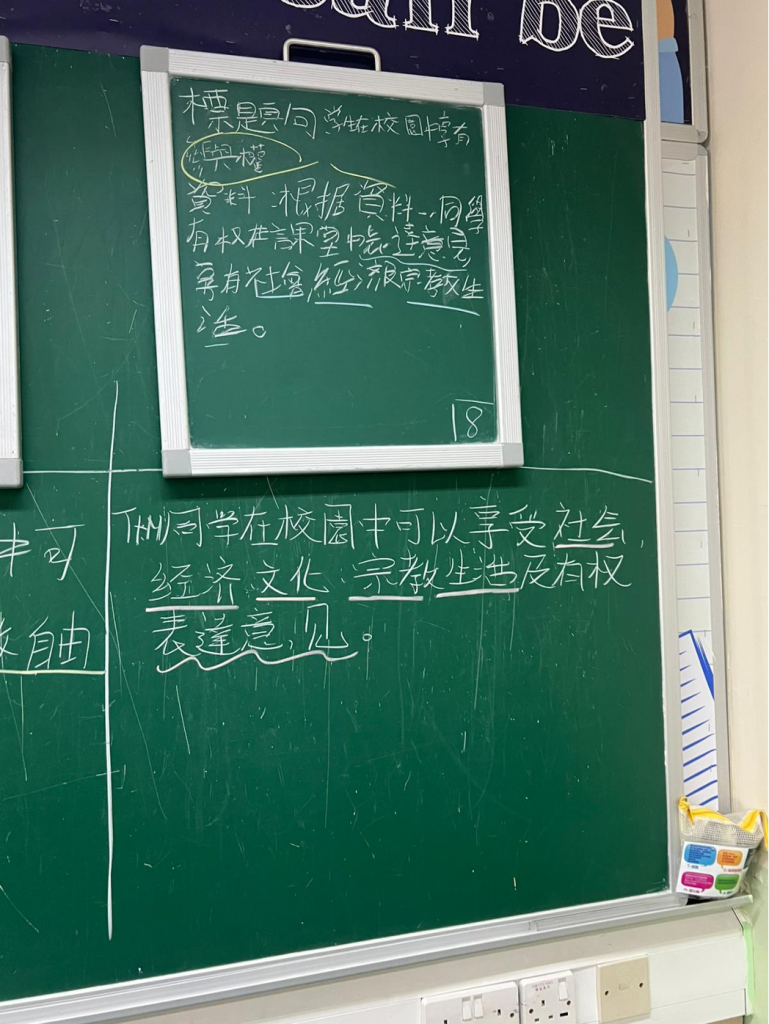 can be
標題:同学在校園中享有
與權
資料:根据資料...同學
有权在課堂中表達意見
享有社會經濟宗教生
活。
18
中可
自由
同学在校園中可以享受社会,
经济 文化 宗教生活及有权
表達意見。